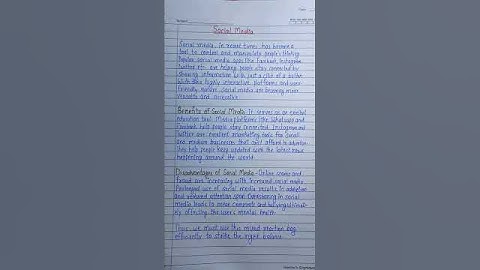 Social Media
Social media, in recent times has become a
tool to control and manipulate people's
Popular social media apps like Facebook, Instagram
Twitter etc. are helping people stay connected by
sharing information with just a click of a button
With their highly interactive platforms and user
friendly nature social media are becoming more
and
Benefits of Social Media- It serves as an excellent
education tool. Media platforms like WhatsApp and
Facebook help people stay connected. Instagram and
Twitter are excellent marketing tools for small
and medium businesses that can't afford to advertise.
This help people keep updated with the latest news
happening around the world.
Disadvantages of Social Media- Online scams and
fraud are increasing with increased social media.
Prolonged use of social media results in addiction
and reduced attention span. Oversharing in social
media leads to online comments and bullying
affecting the user's mental health.
Thus, we must use this mixed
efficiently to strike the right balance.